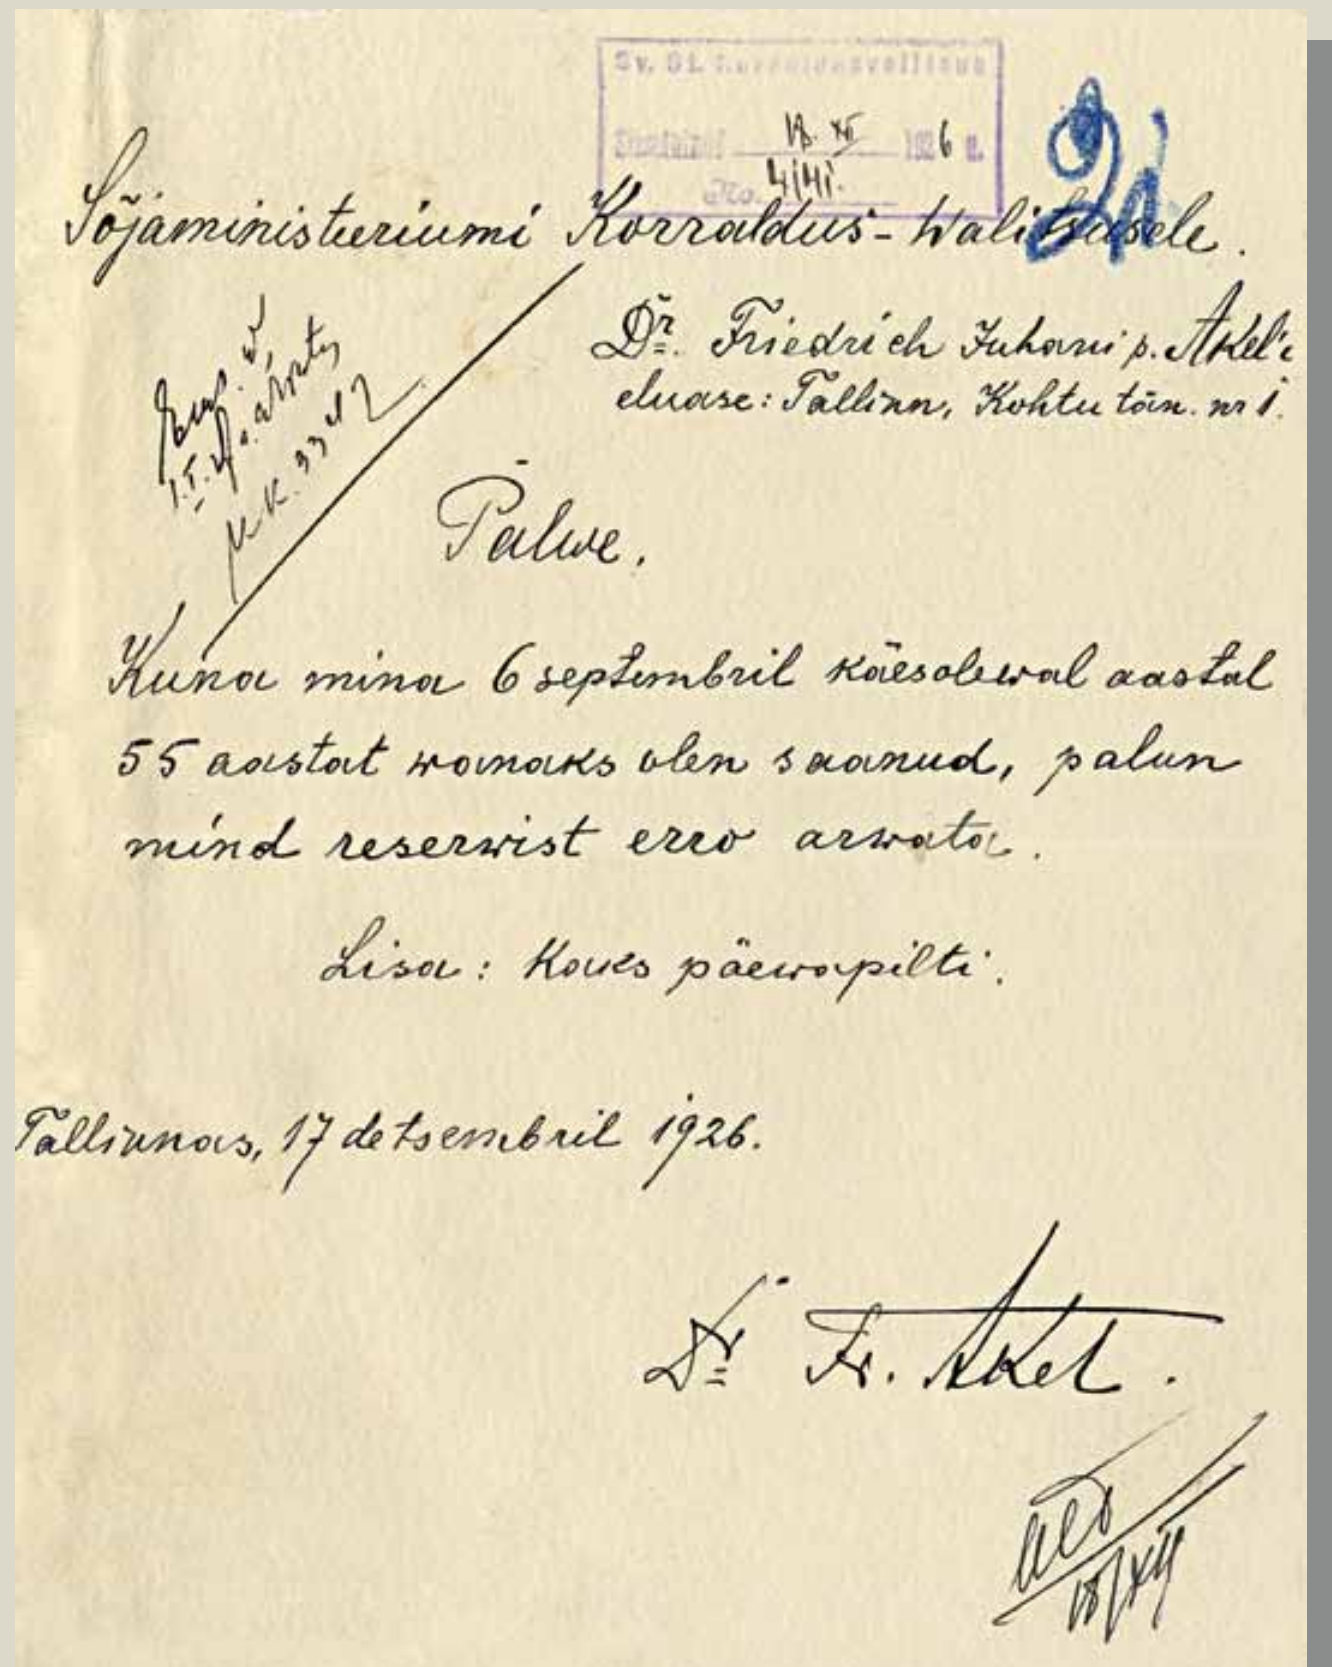 1926 a.
No.
21
Sõjaministeeriumi Korraldus-Walitsusele.
Dr. Friedrich Juhani p. Akel'i
eluase: Tallinn, Kohtu tän. nr 1.
Palwe.
Kuna mina 6 septembril käesolewal aastal
55 aastat wanaks olen saanud, palun
mind reserwist erro arwata.
Lisa: Kaks päewapilti.
Tallinnas, 17 detsembril 1926.
Dr Fr. Akel.
18/XII